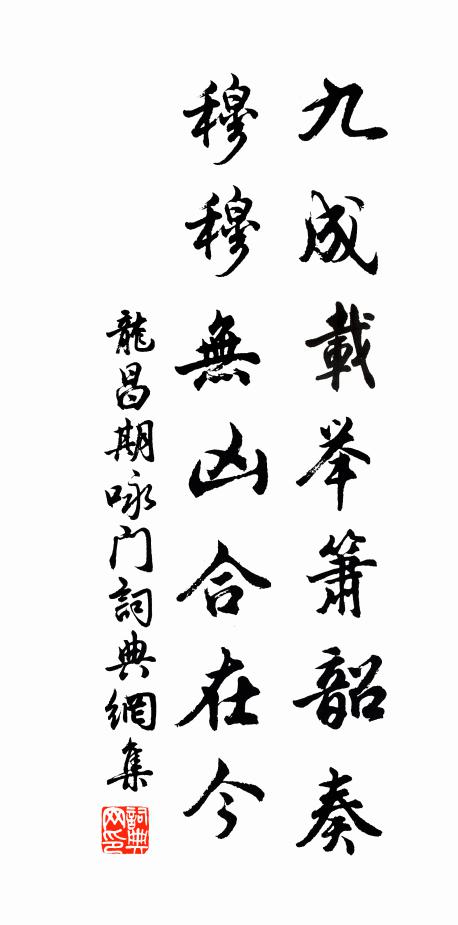 九成載举簫韶奏
穆穆無凶合在今
龍昌期咏门詞典網集
詞典网印